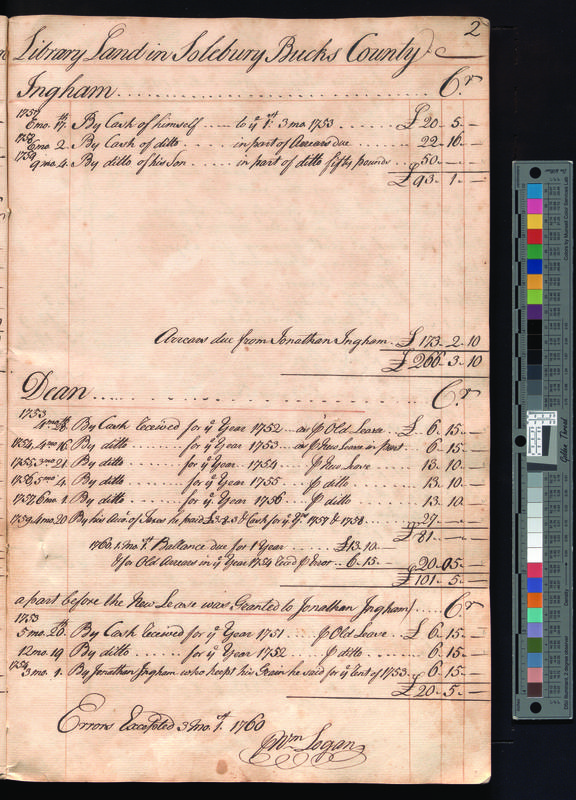 2
Library Land in Solebury Bucks County
Ingham Cr
1757
6mo. 17. By Cash of himself to ye 1st 3 mo 1753 £ 20. 5. —
1758
6mo 2. By Cash of ditto in part of Arrears due 22. 16. —
1759
9 mo. 4. By ditto of his Son in part of ditto fifty pounds 50. — —
£ 93. 1. —
Arrears due from Jonathan Ingham £ 173. 2. 10
£ 266. 3. 10
Dean Cr
1753
4mo 28. By Cash received for ye Year 1752 on p Old Lease £ 6. 15. —
1754. 4mo 16. By ditto for ye Year 1753 on p New Lease in part 6. 15. —
1755. 3mo 21. By ditto for ye Year 1754 p New Lease 13. 10. —
1756. 5mo 4. By ditto for ye Year 1755 p ditto 13. 10. —
1757. 6mo. 1. By ditto for ye Year 1756 p ditto 13. 10. —
1759. 4mo. 20 By his Acct of Taxes he paid £3.8.3 & Cash for ye Yrs 1757 & 1758 27. — —
£ 81. — —
1760. 1. mo 1st. Ballance due for 1 Year £13. 10 —
& for Old Arrears in ye Year 1754 p Error 6. 15. — 20. 05. —
£ 101. 5. —
a part before the New Lease was Granted to Jonathan Ingham) Cr
1753
5 mo. 26. By Cash received for ye Year 1751 p Old Lease £ 6. 15. —
12 mo. 19 By ditto for ye Year 1752 p ditto 6. 15. —
1754
3 mo. 1. By Jonathan Ingham who keept his Grain he said for ye rent of 1753 6. 15. —
£ 20. 5. —
Errors Excepted 3 mo. 1st. 1760
p Wm Logan